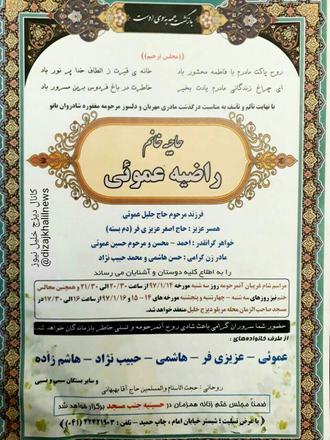 بازگشت همه بسوی اوست
((مجلس ترحیم))
روح پاکت مادرم با فاطمه محشور باد
خانه ی قبرت ز الطاف خدا پر نور باد
ای چراغ زندگانی مادرم یادت بخیر
خاطرت در باغ فردوس برین مسرور باد
با نهایت تاثر و تاسف به مناسبت درگذشت مادری مهربان و دلسوز مرحومه مغفوره شادروان بانو
حاجیه خانم
راضیه عموئی
فرزند مرحوم حاج جلیل عموئی
همسر عزیز : حاج اصغر عزیزی فر (دم بسته)
خواهر گرانقدر : احمد - محسن و مرحوم حسین عموئی
مادر زن گرامی : حسن هاشمی و محمد حبیب نژاد
را به اطلاع کلیه دوستان و آشنایان می رساند
مراسم شام غریبان آنمرحومه روز سه شنبه مورخه ۹۷/۱/۱۴ از ساعت ۲۰/۳۰ الی ۲۱/۳۰ و همچنین مجالس
ختم نیز روز های سه شنبه - چهارشنبه و پنجشنبه مورخه های ۱۴ - ۱۵ و ۹۷/۱/۱۶ از ساعت ۱۶ الی ۱۷/۳۰ در
مسجد صاحب الزمان محله مرلو دیزج خلیل برگزار خواهد شد
حضور شما سروران گرامی باعث شادی روح آنمرحومه و تسلی خاطر بازماندگان خواهد شد
از طرف خانواده های :
عموئی - عزیزی فر - هاشمی - حبیب نژاد - هاشم زاده
و سایر بستگان سببی و نسبی
روحانی : حجت الاسلام والمسلمین حاج آقا بهبهانی
ضمناً مجلس ختم زنانه همزمان در حسینیه جنب مسجد برگزار خواهد شد
با عرض تسلیت : شبستر خیابان امام ، چاپ حمید - تلفن :
کانال دیزج خلیل نیوز
@dizajkhalilnews